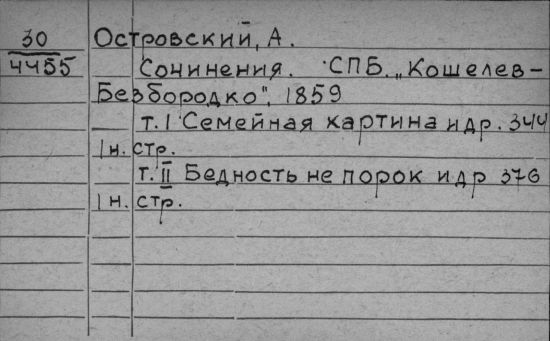 30 Островский, А.
4455 Сочинения. СПБ. „Кошелев-
Безбородко", 1859
т. I Семейная картина и др. 344
1 н. стр.
т. II Бедность не порок и др 376
1 н. стр.